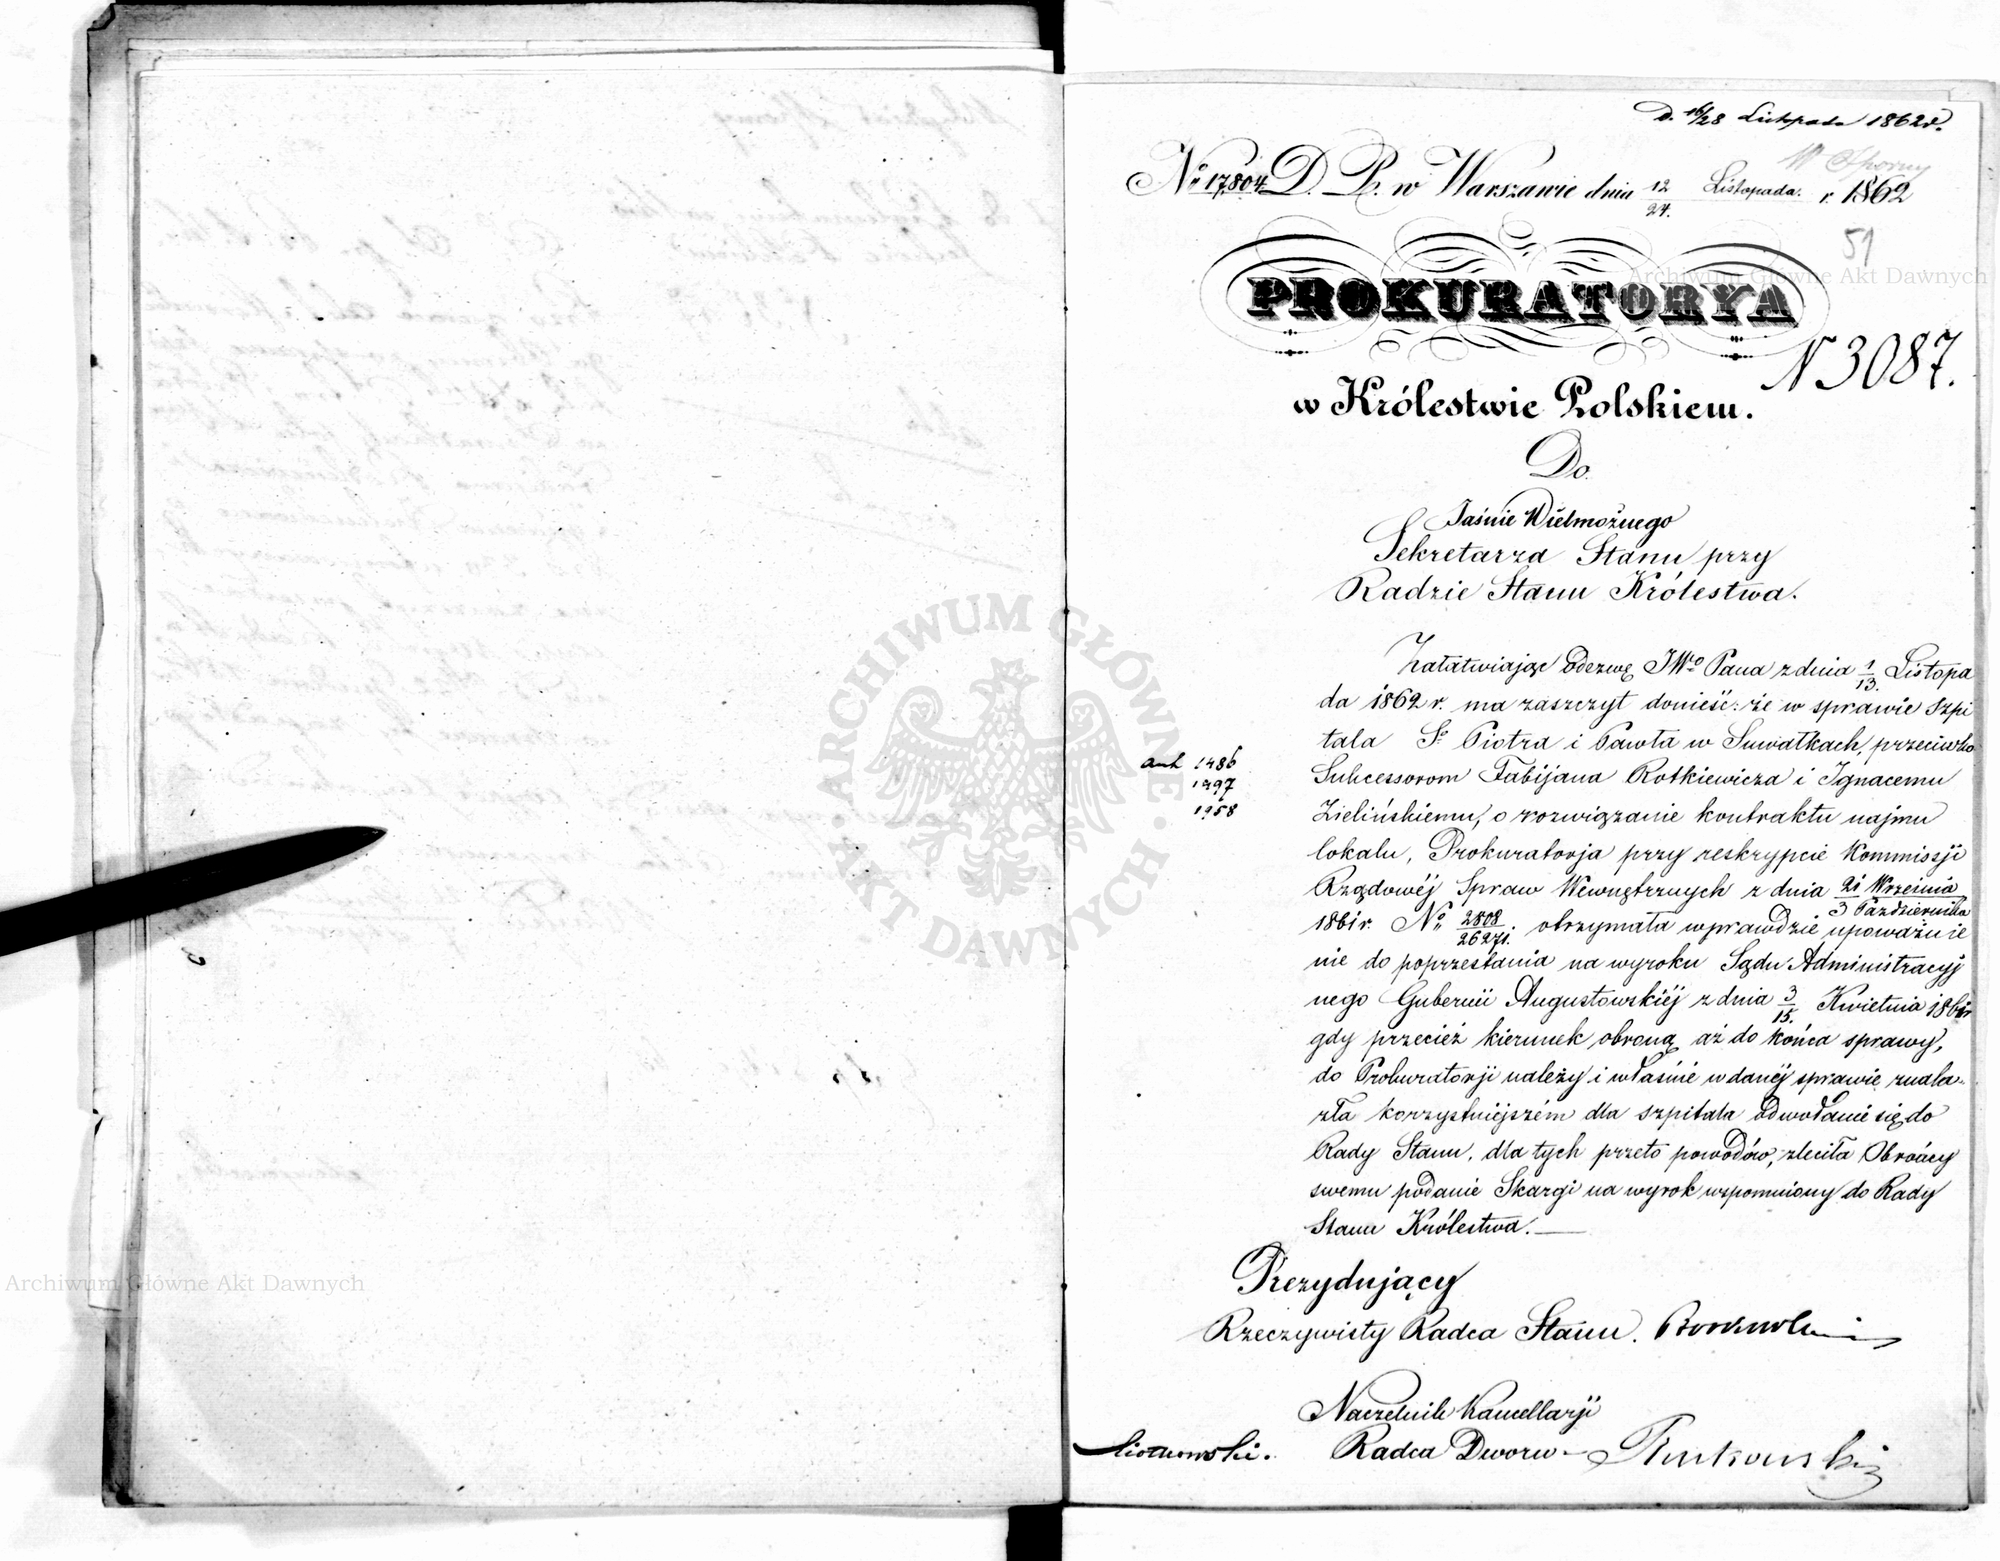 D. 16/28 Listopada 1862 r.
W Sporny
No 17,804 D. P. w Warszawie dnia 12/24. Listopada. r. 1862
51
PROKURATORYA
N 3087.
w Królestwie Polskiem.
Do
Jaśnie Wielmożnego
Sekretarza Stanu przy
Radzie Stanu Królestwa.
Załatwiając Odezwę JWo Pana z dnia 1/13. Listopa
da 1862 r. ma zaszczyt donieść: że w sprawie Szpi
tala Sgo Piotra i Pawła w Suwałkach, przeciwko
Sukcessorom Fabijana Rotkiewicza i Ignacemu
Zielińskiemu, o rozwiązanie kontraktu najmu
lokalu, Prokuratorja przy reskrypcie Kommissji
Rządowéj Spraw Wewnętrznych z dnia 21 Września/3 Października
1861 r. No 2808/26271. otrzymała wprawdzie upoważnie
nie do poprzestania na wyroku Sądu Administracyj
nego Gubernii Augustowskiéj z dnia 3/15. Kwietnia 1861 r
gdy przecież kierunek obroną aż do końca sprawy,
do Prokuratorji należy i właśnie w danéj sprawie znala-
zła korzystniejszém dla szpitala odwołanie się do
Rady Stanu, dla tych przeto powodów, zleciła Obrońcy
swemu podanie Skargi na wyrok wspomniony do Rady
Stanu Królestwa.
ant 1486
1497
1958
Prezydujący
Rzeczywisty Radca Stanu.
Naczelnik Kancellarji
Radca Dworu
Archiwum Główne Akt Dawnych
Archiwum Główne Akt Dawnych
ARCHIWUM GŁÓWNE · AKT DAWNYCH ·